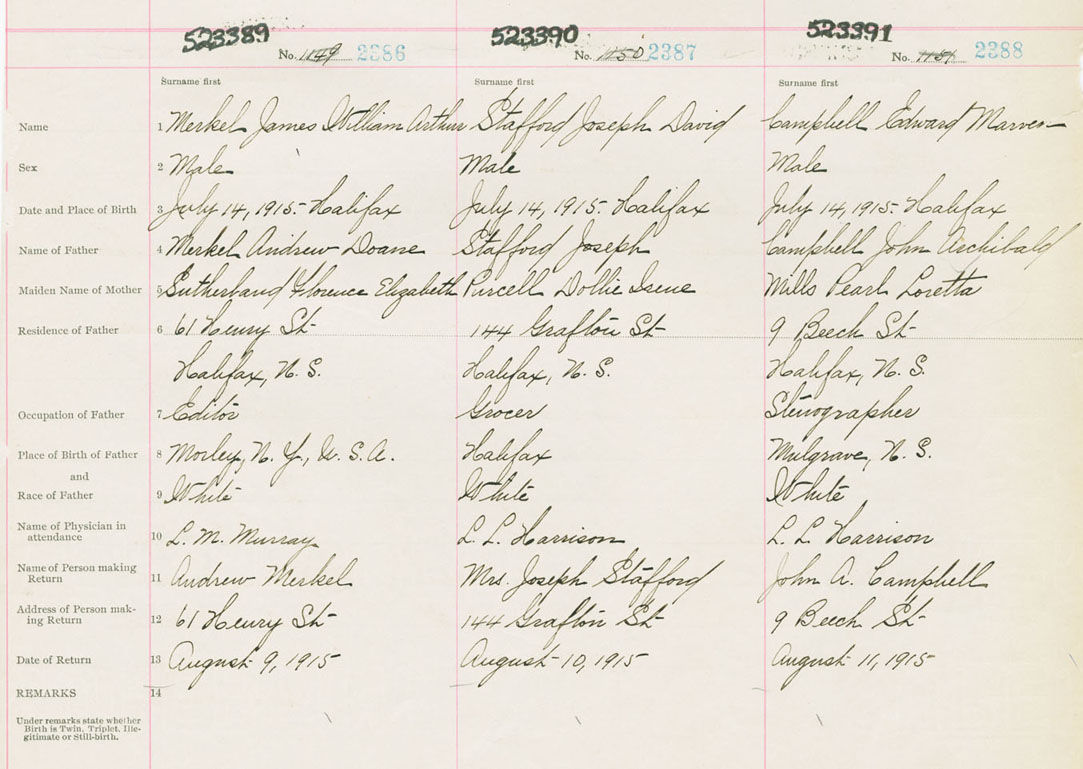 523389 523390 523391
No. 1149 2386 No. 1150 2387 No. 1151 2388
Surname first Surname first Surname first
Name 1 Merkel James William Arthur Stafford Joseph David Campbell Edward Marven
Sex 2 Male Male Male
Date and Place of Birth 3 July 14, 1915 - Halifax July 14, 1915 - Halifax July 14, 1915 - Halifax
Name of Father 4 Merkel Andrew Doane Stafford Joseph Campbell John Archibald
Maiden Name of Mother 5 Sutherland Florence Elizabeth Purcell Dollie Irene Mills Pearl Loretta
Residence of Father 6 61 Henry St 144 Grafton St 9 Beech St
Halifax, N. S. Halifax, N. S. Halifax, N. S.
Occupation of Father 7 Editor Grocer Stenographer
Place of Birth of Father 8 Morley, N. Y., U. S. A. Halifax Mulgrave, N. S.
and
Race of Father 9 White White White
Name of Physician in
attendance 10 L. M. Murray L. L. Harrison L. L. Harrison
Name of Person making
Return 11 Andrew Merkel Mrs. Joseph Stafford John A. Campbell
Address of Person mak-
ing Return 12 61 Henry St 144 Grafton St 9 Beech St
Date of Return 13 August 9, 1915 August 10, 1915 August 11, 1915
REMARKS 14
Under remarks state whether
Birth is Twin, Triplet, Ille-
gitimate or Still-birth.